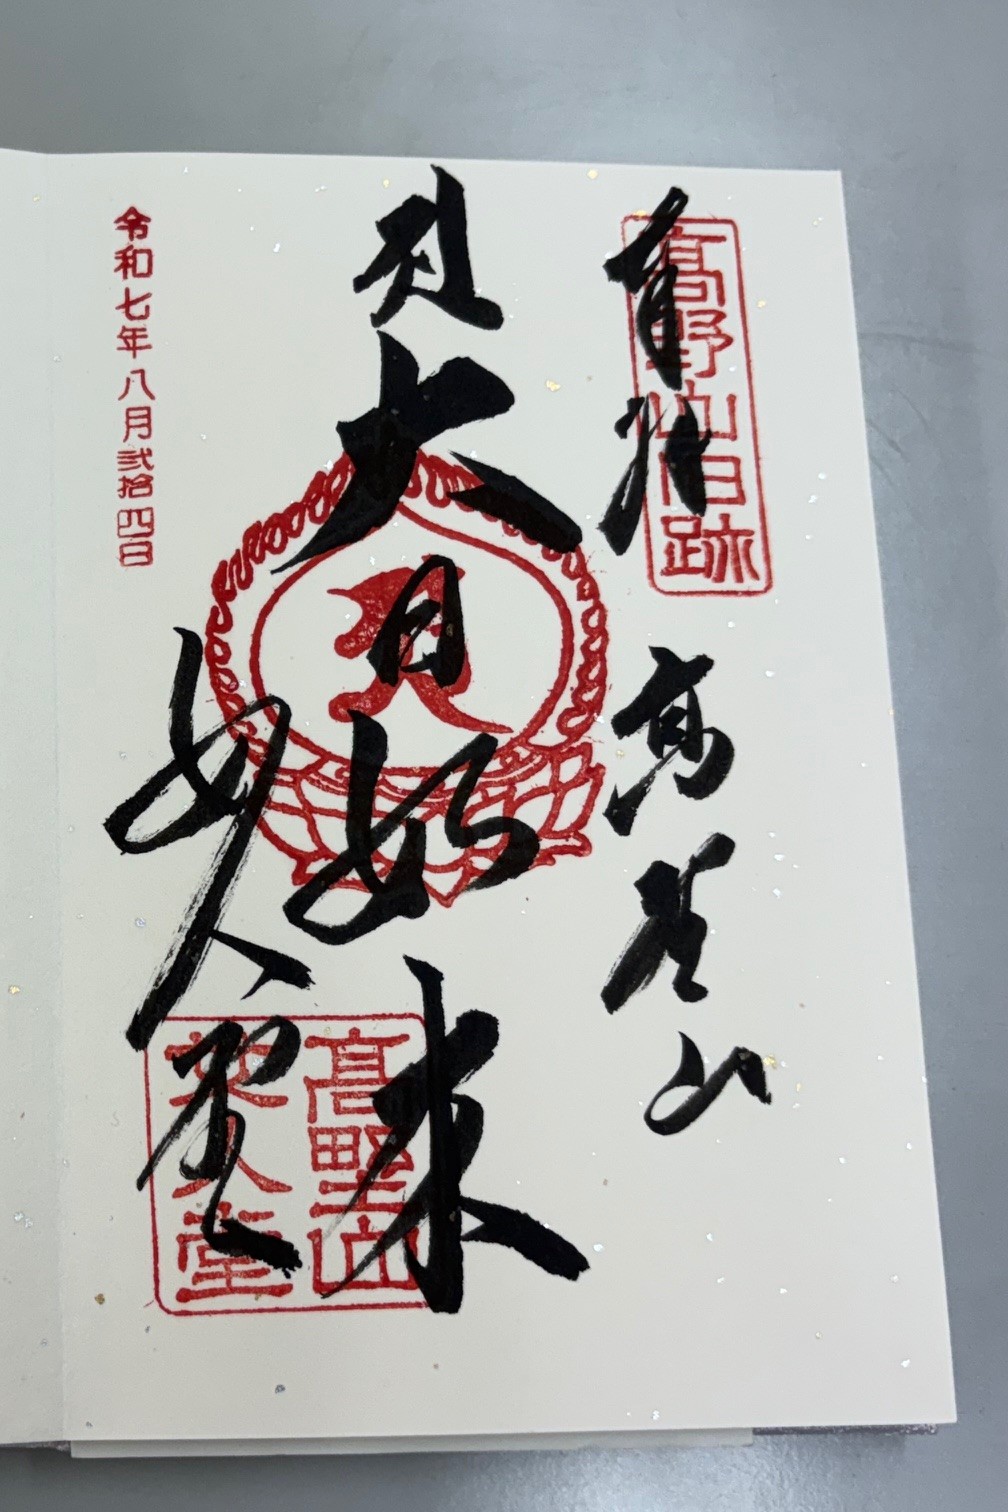 奉拝
高野山旧跡
高野山
大日如来
女人堂
高野山
女人堂
令和七年八月弐拾四日